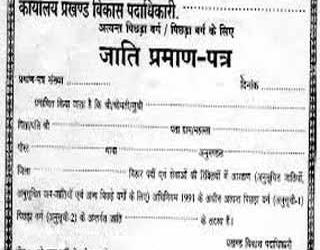 कार्यालय प्रखण्ड विकास पदाधिकारी.
अत्यन्त पिछड़ा वर्ग / पिछड़ा वर्ग के लिए
जाति प्रमाण-पत्र
प्रमाण-पत्र संख्या दिनांक
प्रमाणित किया जाता है कि श्री/श्रीमती/सुश्री
पिता/पति श्री पता ग्राम/मुहल्ला
पोस्ट थाना अनुमण्डल
जिला बिहार पदों एवं सेवाओं की रिक्तियों में आरक्षण (अनुसूचित जातियों,
अनुसूचित जन-जातियों एवं अन्य पिछड़े वर्गों के लिए) अधिनियम 1991 के अधीन अत्यन्त पिछड़ा वर्ग (अनुसूची-1)
पिछड़ा वर्ग (अनुसूची-2) के अन्तर्गत जाति के सदस्य है।
प्रखण्ड विकास पदाधिकारी